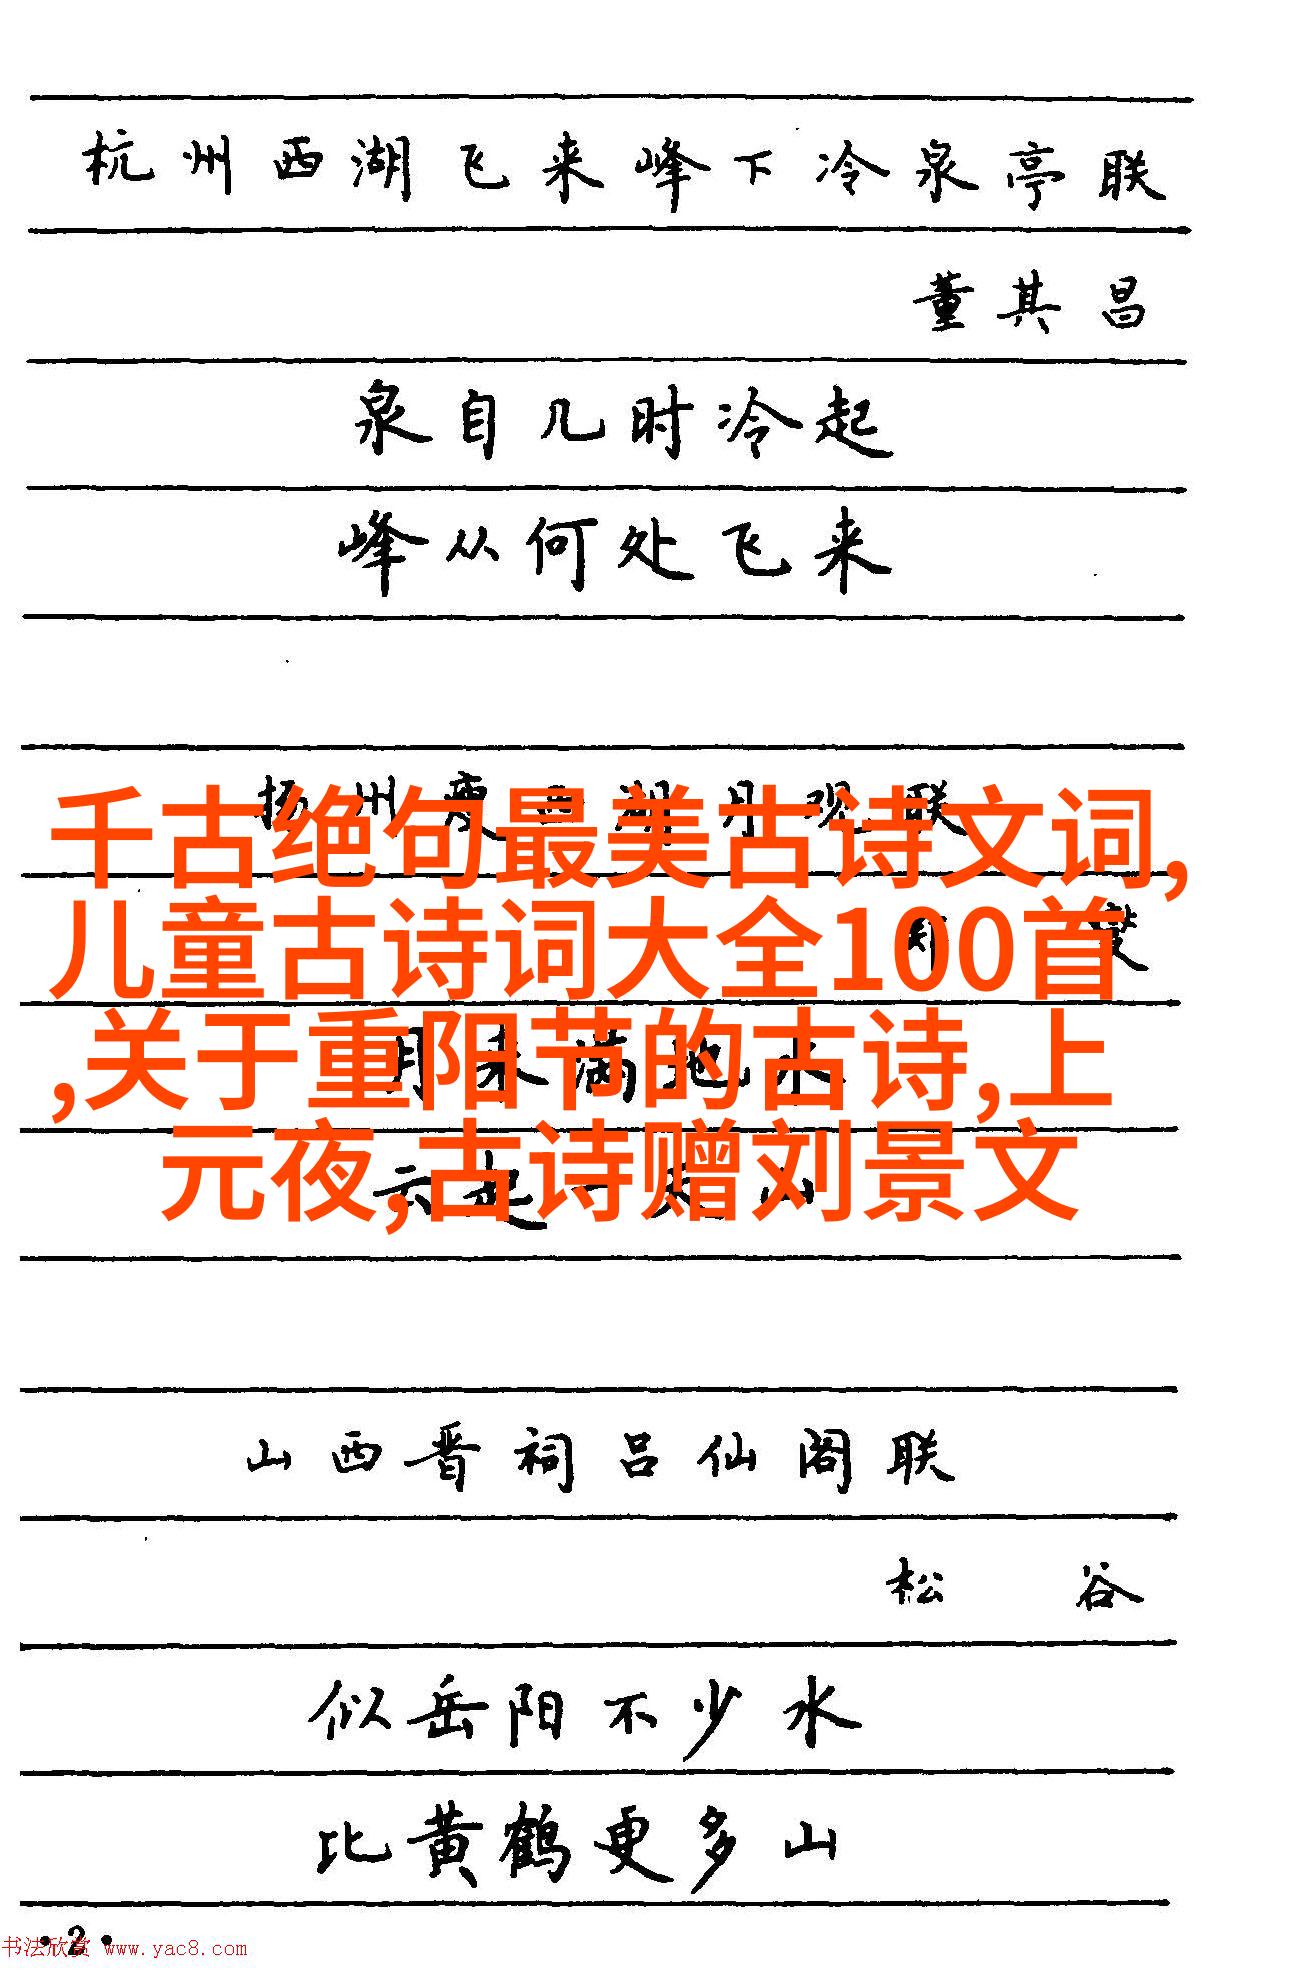 杭州西湖飞来峰下冷泉亭联
董其昌
泉自几时冷起
峰从何处飞来
扬州瘦西湖月观联
千古绝句最美古诗文词,
儿童古诗词大全100首
,关于重阳节的古诗,上
元夜,古诗赠刘景文
月来满地水
云起一天山
山西晋祠吕仙阁联
松谷
似岳阳不少水
比黄鹤更多山
·2·
书法欣赏 www.yac8.com